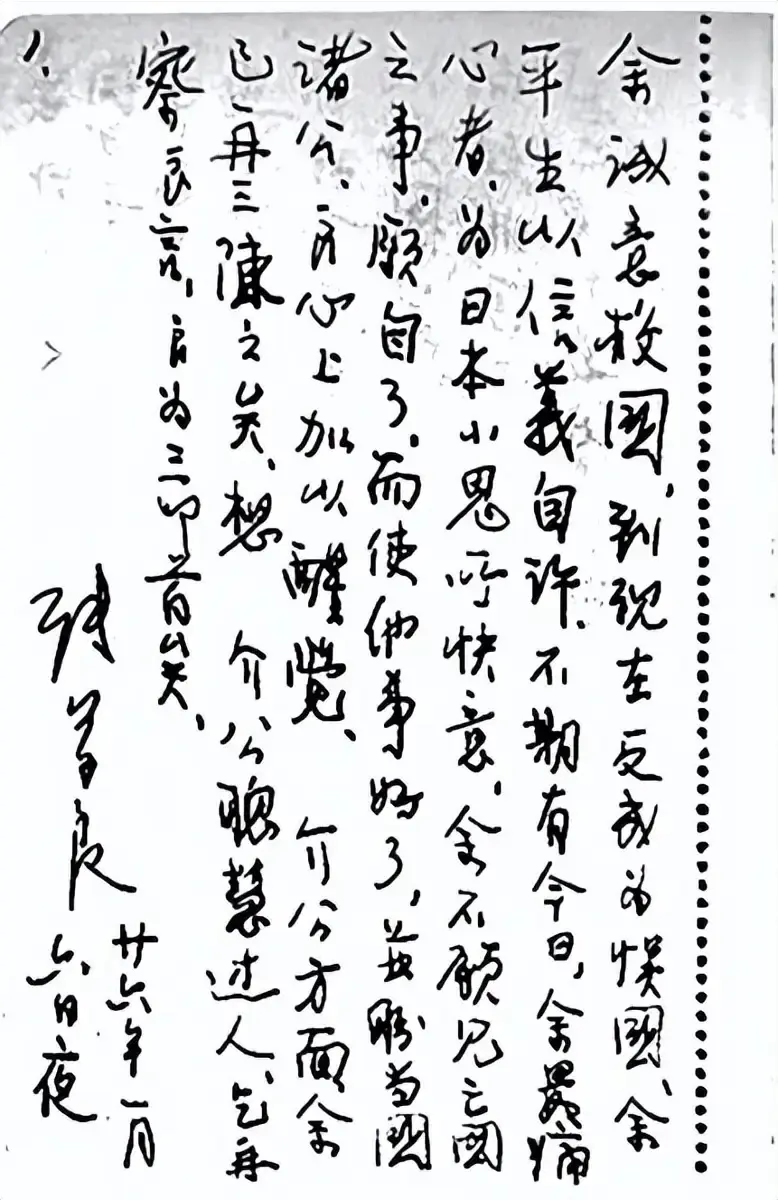 余誠意救國、到現在反成為悮國、余
平生以信義自許、不期有今日、余最痛
心者、為日本小鬼所快意、余不願見亡國
之事、願自了、而使他事好了、並盼当國
諸公、良心上加以醒覺、介公方面余
已再三陳之矣、想 介公聰慧過人、乞再
察良言、良為三叩首矣、
張學良
廿六年一月
六日夜
1.